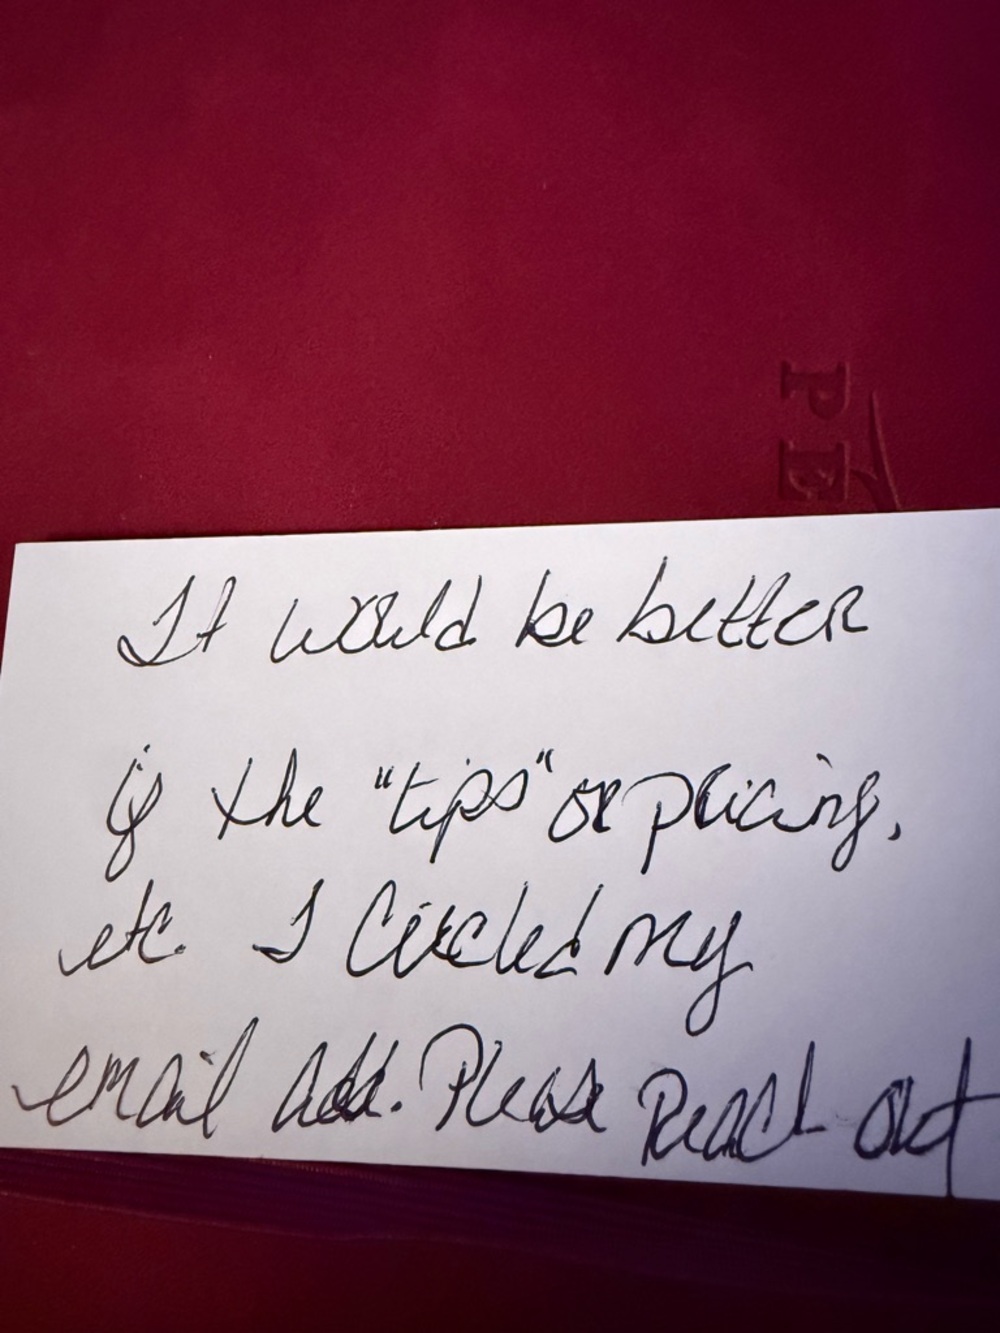 It would be better
if the "tips" or pricing,
etc. I Circled my
email add. Please Reach out
PE